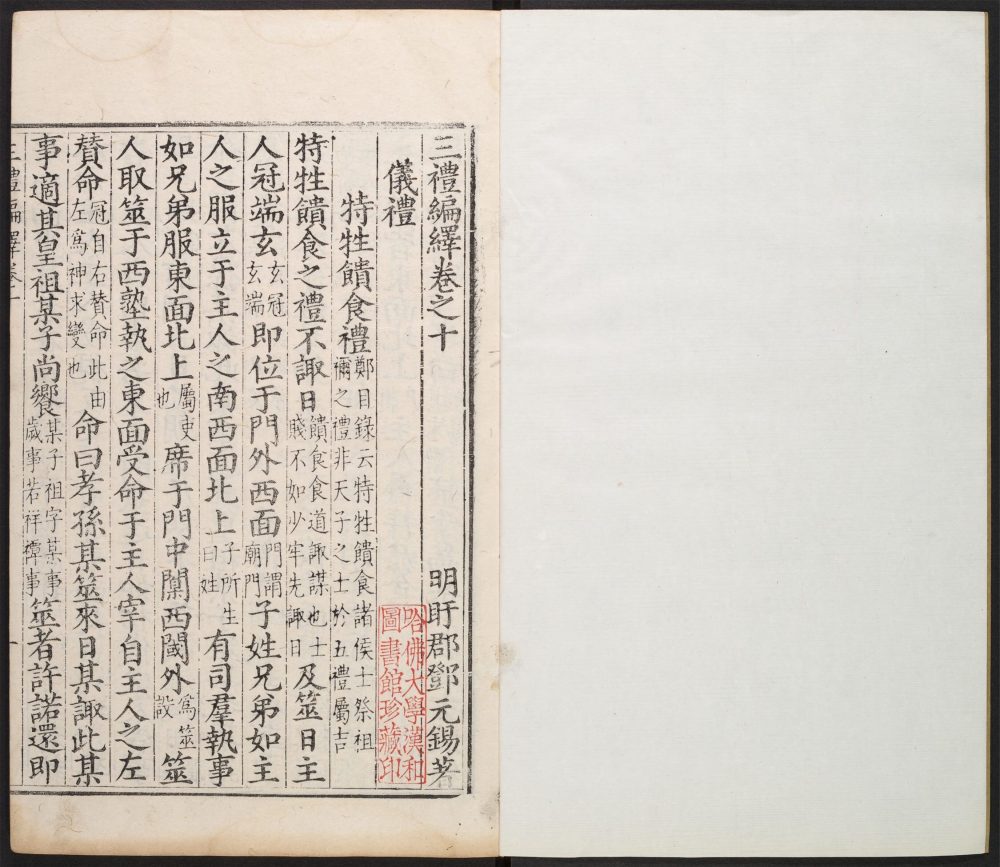 三禮編繹卷之十　明盱郡鄧元錫著
儀禮
特牲饋食禮鄭目錄云特牲饋食諸侯士祭祖禰之禮非天子之士於五禮屬吉
特牲饋食之禮不諏日饋食食道諏謀也士賤不如少牢先諏日及筮日主
人冠端玄玄冠玄端即位于門外西面門謂廟門子姓兄弟如主
人之服立于主人之南西面北上子所生曰姓有司羣執事
如兄弟服東面北上屬吏也席于門中闑西閾外爲筮設筮
人取筮于西塾執之東面受命于主人宰自主人之左
賛命冠自右賛命此由左爲神求變也命曰孝孫某筮來日某諏此某
事適其皇祖某子尚饗某子祖字某事歲事若祥禫事筮者許諾還即
三禮編繹卷十　一
哈佛大學漢和
圖書館珍藏印